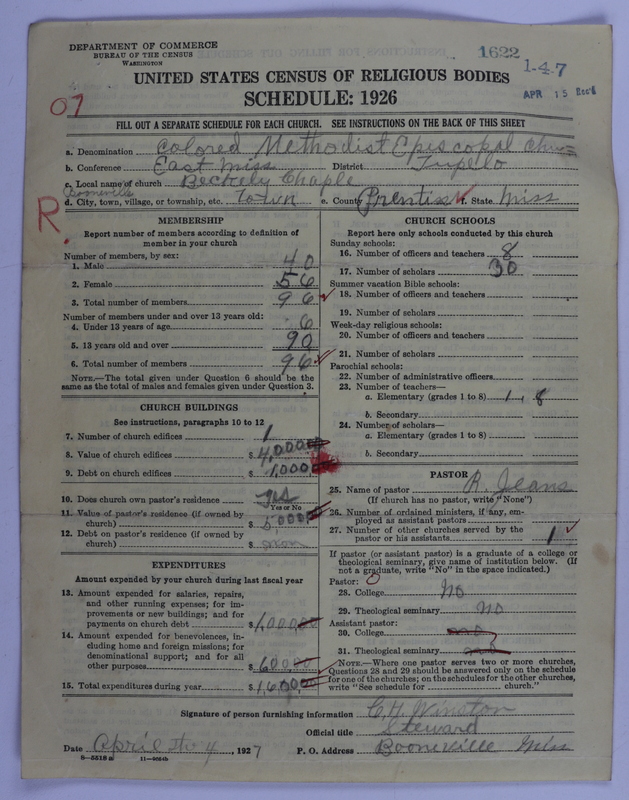 DEPARTMENT OF COMMERCE
BUREAU OF THE CENSUS
WASHINGTON
1622
1-47
APR 15
UNITED STATES CENSUS OF RELIGIOUS BODIES
SCHEDULE: 1926
07
FILL OUT A SEPARATE SCHEDULE FOR EACH CHURCH. SEE INSTRUCTIONS ON THE BACK OF THIS SHEET
a. Denomination Colored Methodist Episcopal
b. Conference East Miss District Tupello
c. Local name of church Beckely Chaple
Booneville
d. City, town, village, or township, etc. Town e. County Prentiss f. State Miss
R.
MEMBERSHIP
Report number of members according to definition of member in your church
Number of members, by sex:
1. Male 40
2. Female 56
3. Total number of members 96
Number of members under and over 13 years old:
4. Under 13 years of age 6
5. 13 years old and over 90
6. Total number of members 96
NOTE.—The total given under Question 6 should be the
same as the total of males and females given under Question 3.
CHURCH BUILDINGS
See instructions, paragraphs 10 to 12
7. Number of church edifices 1
8. Value of church edifices $ 4,000
9. Debt on church edifices $ 1,000
10. Does church own pastor's residence yes
Yes or No
11. Value of pastor's residence (if owned by
church) $ 5000
12. Debt on pastor's residence (if owned by
church) $ non
EXPENDITURES
Amount expended by your church during last fiscal year
13. Amount expended for salaries, repairs,
and other running expenses; for im-
provements or new buildings; and for
payments on church debt $ 1,000
14. Amount expended for benevolences, in-
cluding home and foreign missions; for
denominational support; and for all
other purposes $ 600
15. Total expenditures during year $ 1,600
CHURCH SCHOOLS
Report here only schools conducted by this church
Sunday schools:
16. Number of officers and teachers 8
17. Number of scholars 30
Summer vacation Bible schools:
18. Number of officers and teachers
19. Number of scholars
Week-day religious schools:
20. Number of officers and teachers
21. Number of scholars
Parochial schools:
22. Number of administrative officers
23. Number of teachers—
a. Elementary (grades 1 to 8) 1, 8
b. Secondary
24. Number of scholars—
a. Elementary (grades 1 to 8)
b. Secondary
PASTOR
25. Name of pastor R. Jeans
(If church has no pastor, write "None")
26. Number of ordained ministers, if any, em-
ployed as assistant pastors
27. Number of other churches served by the
pastor or his assistants 1
If pastor (or assistant pastor) is a graduate of a college or
theological seminary, give name of institution below. (If
not a graduate, write "No" in the space indicated.)
Pastor:
28. College No
29. Theological seminary no
Assistant pastor:
30. College no
31. Theological seminary no
NOTE.—Where one pastor serves two or more churches,
Questions 28 and 29 should be answered only on the schedule
for one of the churches; on the schedules for the other churches,
write "See schedule for church."
Signature of person furnishing information C. H. Winston
Official title Steward
Date April the 4, 1927 P. O. Address Booneville Miss
8-5518 a 11-9064b